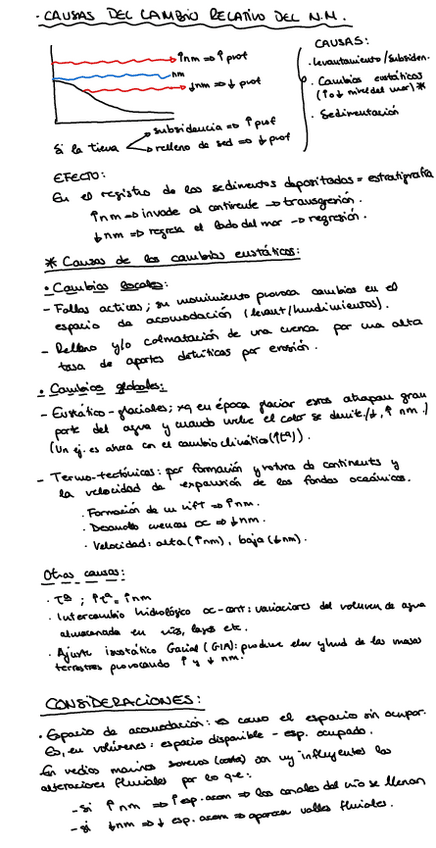 · CAUSAS DEL CAMBIO RELATIVO DEL N.M.
↑nm ⇒ ↑ prof
nm
↓nm ⇒ ↓ prof
Si la tierra
subsidencia ⇒ ↑ prof
relleno de sed ⇒ ↓ prof
CAUSAS:
· levantamiento/subsiden.
· Cambios eustáticos
(↑o↓ nivel del mar)*
· Sedimentación
EFECTO:
En el registro de los sedimentos depositados = estratigrafía
↑nm ⇒ invade al continente → transgresión.
↓nm ⇒ regresa el lado del mar → regresión.
* Causas de los cambios eustáticos:
· Cambios locales:
- Fallas activas; su movimiento provoca cambios en el
espacio de acomodación (levant/hundimientos).
- Relleno y/o colmatación de una cuenca por una alta
tasa de aportes detríticos por erosión.
· Cambios globales:
- Eustático-glaciales; xq en época glaciar estos atrapan gran
parte del agua y cuando vuelve el calor se derrite/↓, ↑ nm.)
(Un ej. es ahora con el cambio climático (↑tª)).
- Termo-tectónicas: por formación y rotura de continents y
la velocidad de expansión de los fondos oceánicos.
· Formación de un rift ⇒ ↑nm.
· Desarrollo cuencas oc ⇒ ↓nm.
· Velocidad: alta (↑nm), baja (↓nm).
Otras causas:
· Tª ; ↑tª = ↑nm
· Intercambio hidrológico oc-cont: variaciones del volumen de agua
almacenada en ríos, lagos etc.
· Ajuste isostático Glacial (GIA): produce elev y hund de las masas
terrestres provocando ↑ y ↓ nm.
CONSIDERACIONES:
· Espacio de acomodación: es como el espacio sin ocupar.
Es, en volúmenes: espacio disponible - esp. ocupado.
En medios marinos someros (costa) son uy influyentes las
alteraciones fluviales por lo que:
- si ↑nm ⇒ ↑ esp. acom ⇒ los canales del río se llenan
- si ↓nm ⇒ ↓ esp. acom ⇒ aparecen valles fluviales.